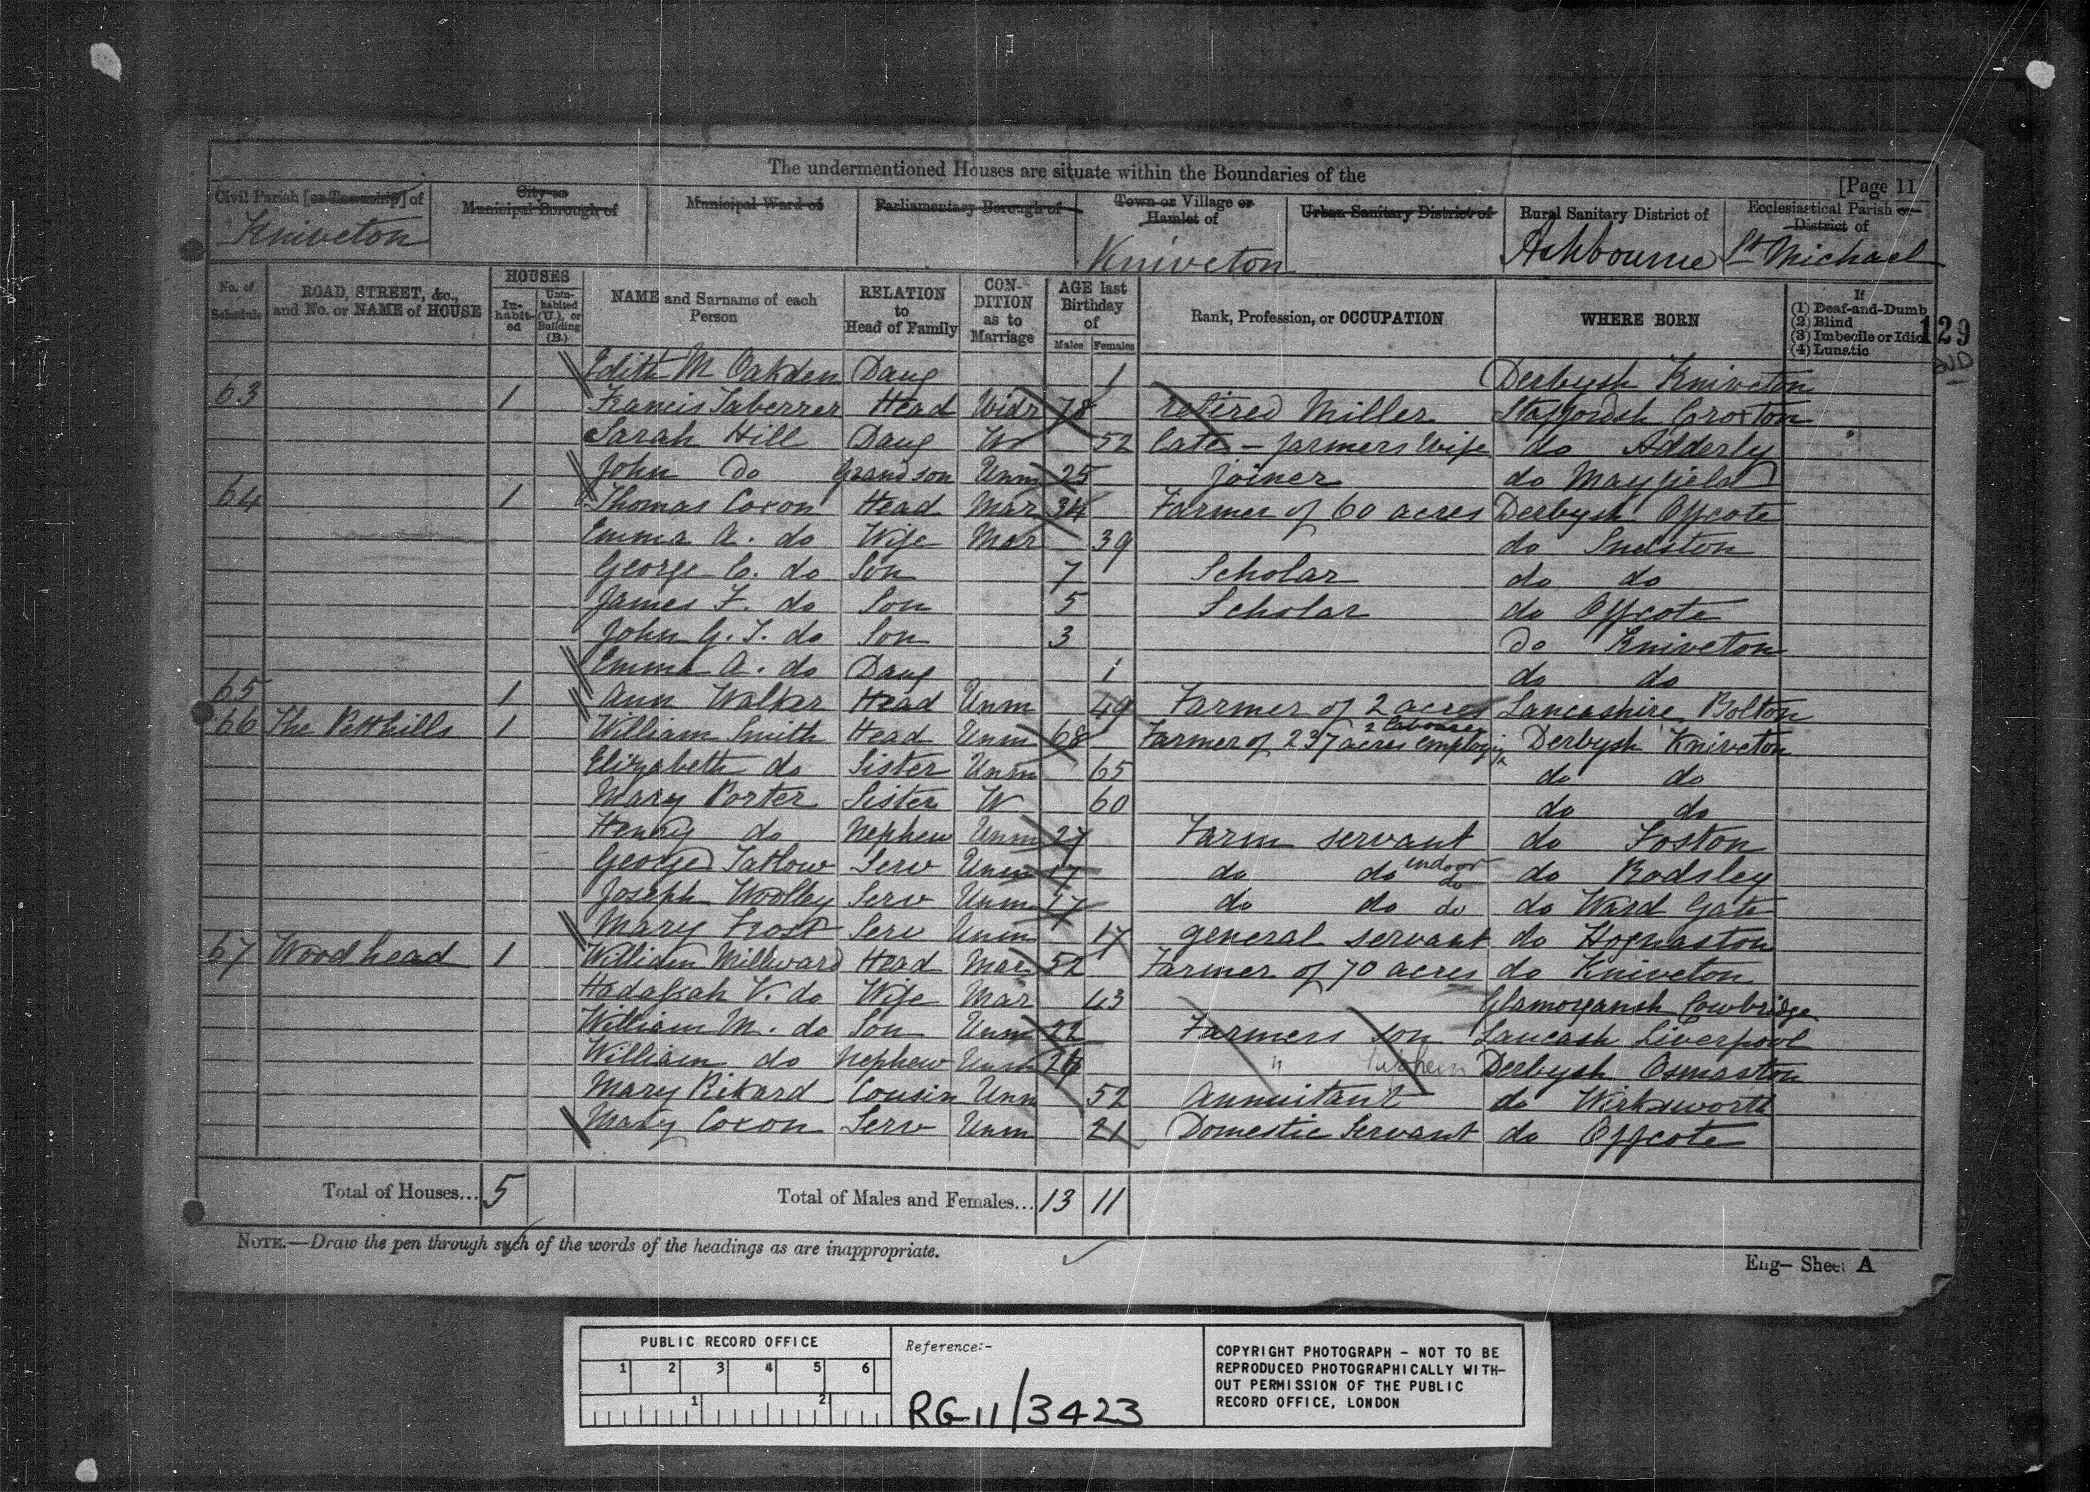 The undermentioned Houses are situate within the Boundaries of the
[Page 11
Civil Parish [or Township] of
Kniveton
City or
Municipal Borough of
Municipal Ward of
Parliamentary Borough of
Town or Village or
Hamlet of
Kniveton
Urban Sanitary District of
Rural Sanitary District of
Ashbourne
Ecclesiastical Parish or
District of
St Michael
No. of
Schedule
ROAD, STREET, &c.,
and No. or NAME of HOUSE
HOUSES
In-
habit-
ed
Unin-
habited
(U.), or
Building
(B.)
NAME and Surname of each
Person
RELATION
to
Head of Family
CON-
DITION
as to
Marriage
AGE last
Birthday
of
Males Females
Rank, Profession, or OCCUPATION
WHERE BORN
If
(1) Deaf-and-Dumb
(2) Blind
(3) Imbecile or Idiot
(4) Lunatic
129
Edith M Oakden Daug 1 Derbysh Kniveton
63 1 Francis Taberrer Head Widr 78 retired Miller Staffordsh Croxton
Sarah Hill Daug W 52 late - farmers Wife do Adderly
John do Grandson Unm 25 joiner do Mayfield
64 1 Thomas Coxon Head Mar 34 Farmer of 60 acres Derbysh Offcote
Emma A. do Wife Mar 39 do Snelston
George C. do Son 7 Scholar do do
James F. do Son 5 Scholar do Offcote
John G. T. do Son 3 do Kniveton
Emma A. do Daug 1 do do
65 1 Ann Walker Head Unm 49 Farmer of 2 acres Lancashire Bolton
66 The Petthills 1 William Smith Head Unm 68 Farmer of 237 acres employing 2 labourers Derbysh Kniveton
Elizabeth do Sister Unm 65 do do
Mary Porter Sister W 60 do do
Henry do Nephew Unm 27 Farm servant do Foston
George Tatlow Serv Unm 17 do do indoor do Rodsley
Joseph Woolley Serv Unm 17 do do do do Ward Gate
Mary Frost Serv Unm 17 general servant do Hognaston
67 Woodhead 1 William Millward Head Mar 52 Farmer of 70 acres do Kniveton
Hadassah V. do Wife Mar 43 Glamorgansh Cowbridge
William M. do Son Unm 22 Farmers son Lancash Liverpool
William do Nephew Unm 26 " Derbysh Osmaston
Mary Rikard Cousin Unm 52 Annuitant do Wirksworth
Mary Coxon Serv Unm 21 Domestic Servant do Offcote
Total of Houses... 5
Total of Males and Females... 13 11
NOTE.—Draw the pen through such of the words of the headings as are inappropriate.
Eng— Sheet A
PUBLIC RECORD OFFICE
1 2 3 4 5 6
1 2
Reference:-
RG 11/3423
COPYRIGHT PHOTOGRAPH - NOT TO BE
REPRODUCED PHOTOGRAPHICALLY WITH-
OUT PERMISSION OF THE PUBLIC
RECORD OFFICE, LONDON